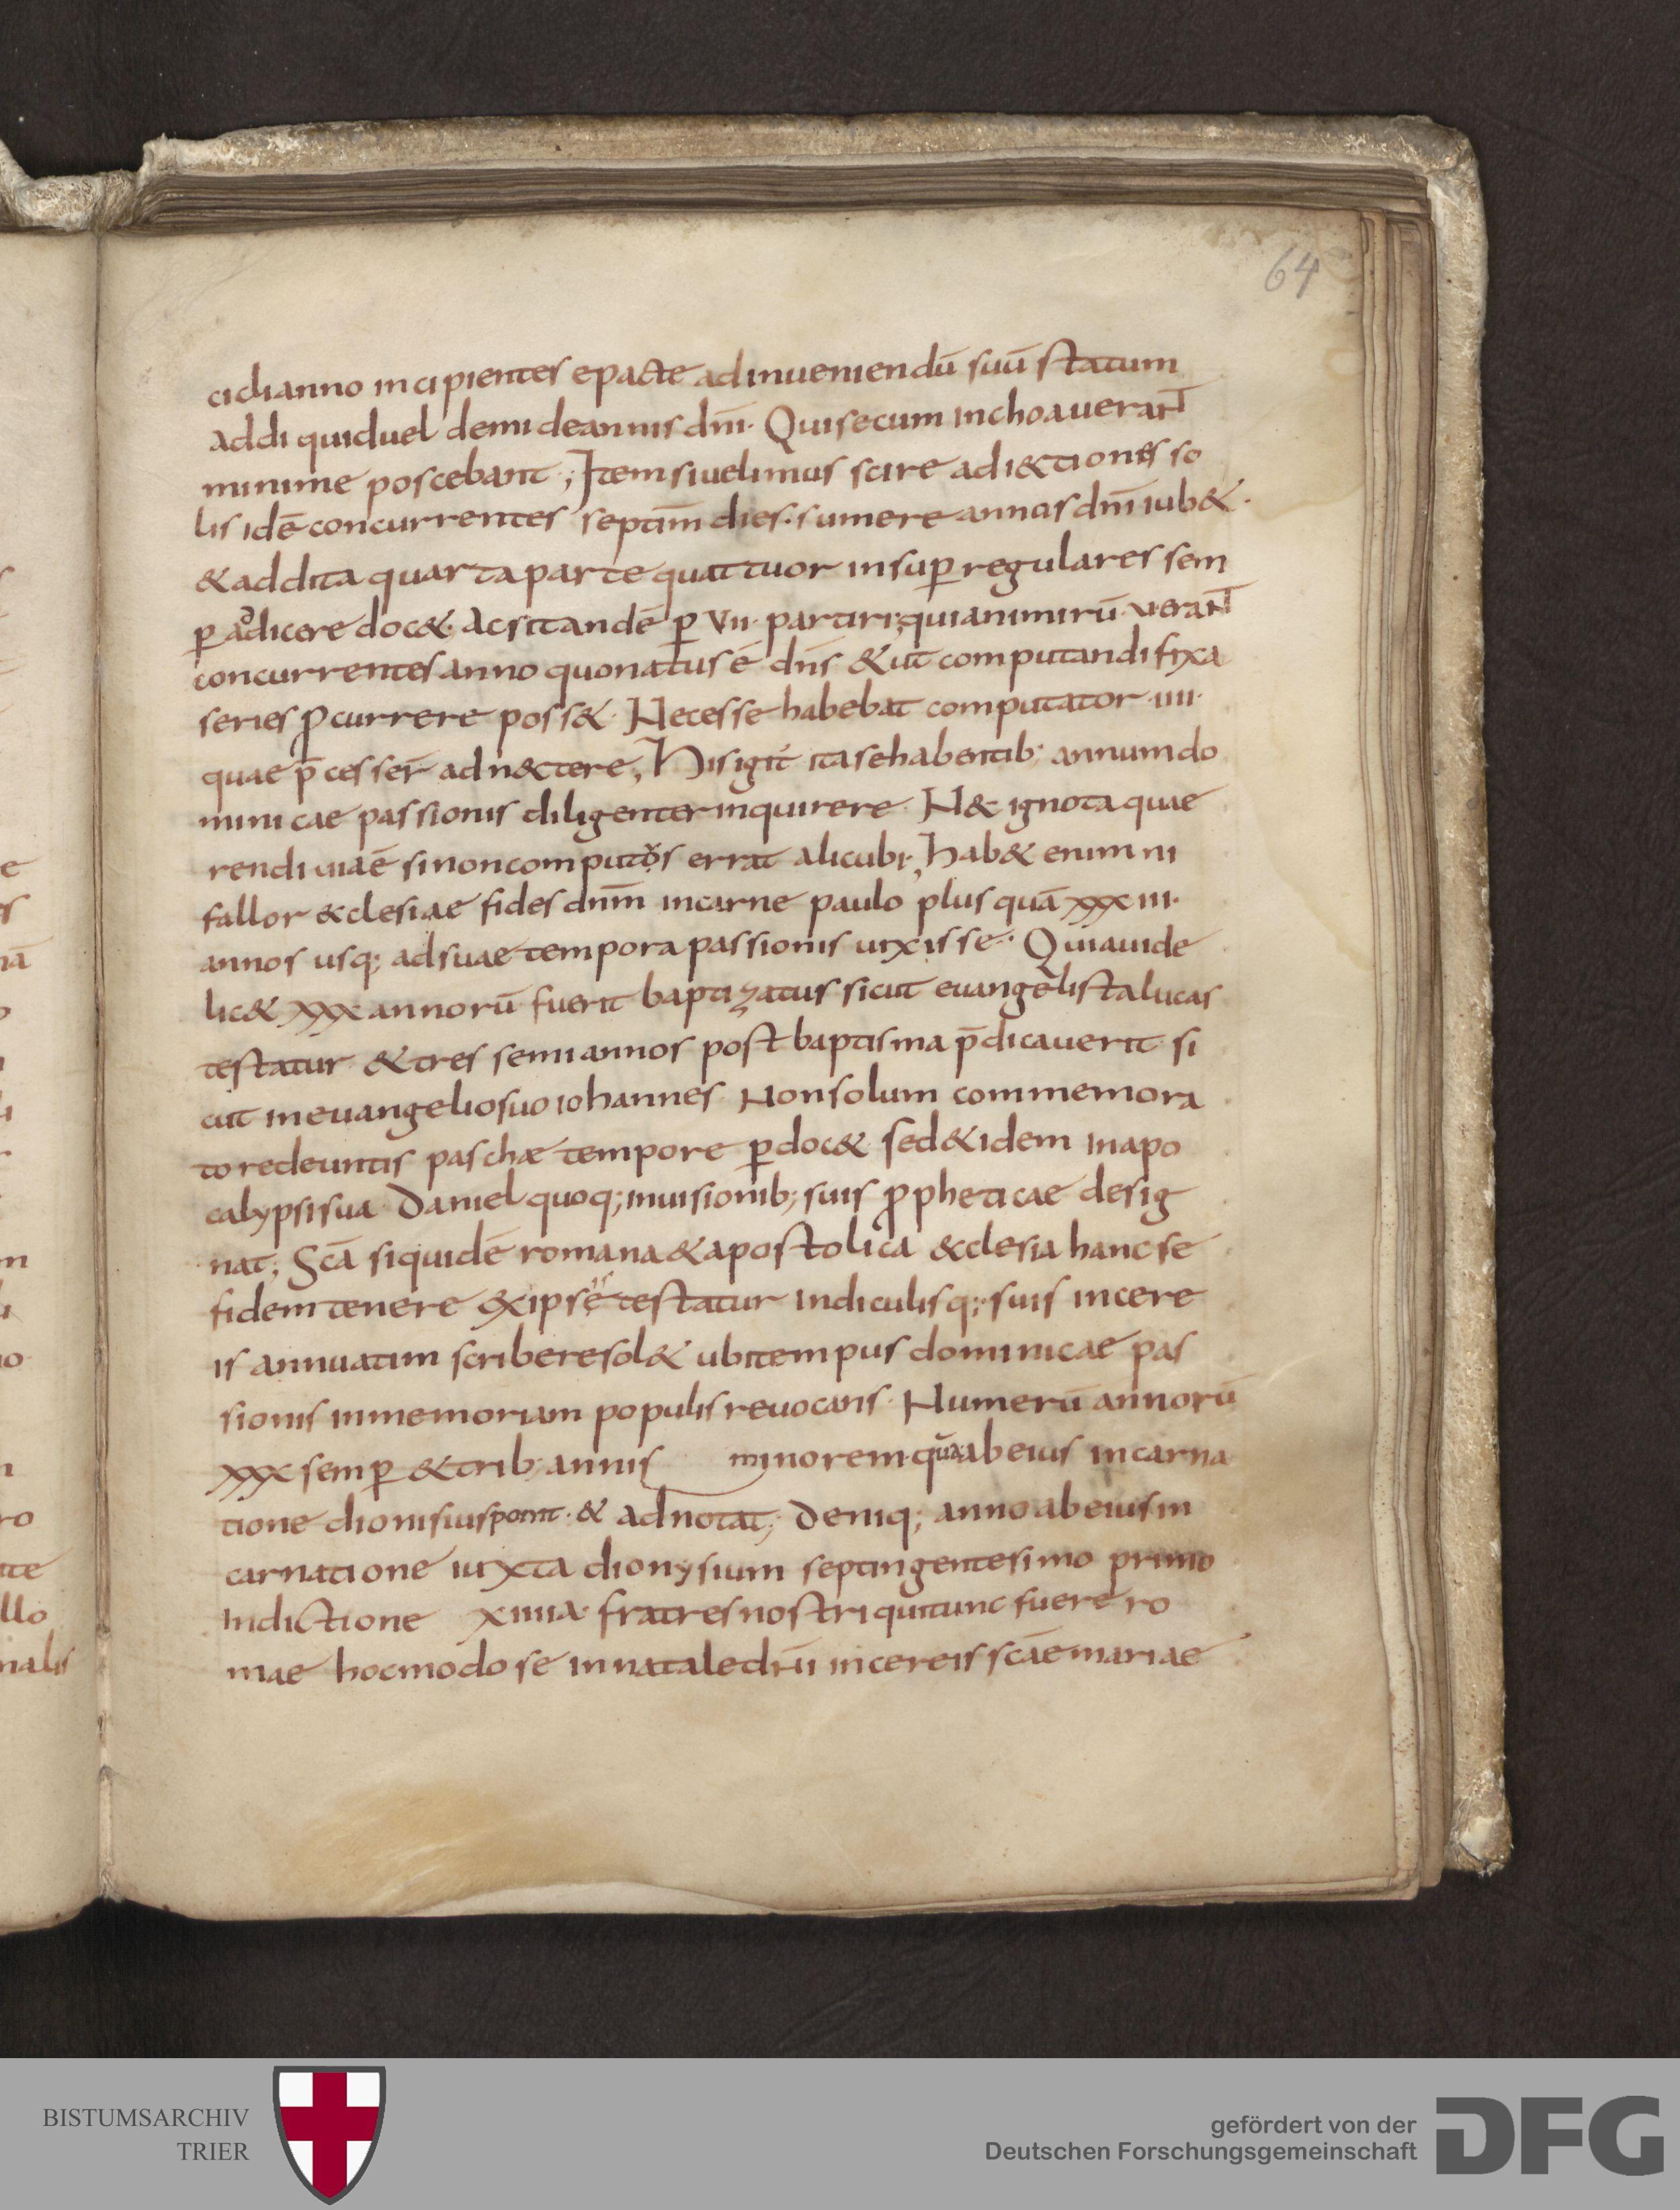 64
cidi anno incipientes epacte ad inueniendū suū statum
addi quid uel demi de annis dn̄i. Qui secum inchoauerant
minime poscebant; Item si uelimus scire adi&tiones so
lis idē concurrentes septim̄ dies. sumere annos dn̄i iub&.
& addita quarta parte quattuor insup̄ regulares sem
p̄ adicere doc&. ac sit andē p̄ VII. partiri; quia nimirū. v. erant
concurrentes anno quo natus ē dn̄s & ut computandi fixa
series ꝓcurrere poss&. Necesse habebat computator. IIII.
quae p̄cesser̄ adn&ctere; His igit́ ita se habentib; annum do
minicae passionis diligenter inquirere. N& ignota quae
rendi uia ē si non computọ̌s errat alicubi; Hab& enim ni
fallor &clesiae fides dnm̄ in carne paulo plus quā XXXIII.
annos usq; ad suae tempora passionis uixisse. Quia uide
lic& XXX annorū fuerit baptizatus sicut euangelista lucas
testatur & tres semiannos post baptisma p̄dicauerit. si
cut in euangelio suo iohannes. Non solum commemora
to redeuntis paschæ tempore p̄doc&. sed & idem in apo
calypsi sua. Daniel quoq; in uisionib; suis ꝓpheticae desig
nat; Scā siquidē romana & apostolica &clesia hanc se
fidem tenere & ipsẹis testatur indiculis q; suis in cere
is annuatim scribere sol& ubi tempus dominicae pas
sionis in memoriam populis reuocans. Numerū annorū
XXX semp̄ & trib; annis minorem. quā ab eius incarna
tione dionisius ponit. & adnotat; Deniq; anno ab eius in
carnatione iuxta dionysium septingentesimo primo
indictione XIIIIA. fratres nostri qui tunc fuere ro
mae hoc modo se in natale dn̄i in cereis scāe mariae
BISTUMSARCHIV
TRIER
gefördert von der
Deutschen Forschungsgemeinschaft
DFG